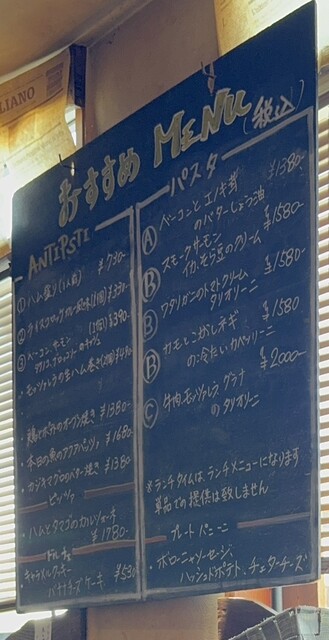 LIANO
おすすめ MENU (税込)
ANTIPSTI
① ハム盛り(1人前) ¥730-
②
③ ベーコン・サーモン
鶏とポテトのオーブン焼き ¥1380-
・本日の魚のアクアパッツァ ¥1680-
・カジキマグロのバター焼き ¥1380
ピッツァ
・ハムとタマゴのカルツォーネ
¥1780-
ドルチェ
キャラメルケーキ
・バナナチーズケーキ ¥530-
パスタ
Ⓐ ベーコンとエノキ茸
のバターしょう油 ¥1380-
Ⓑ スモークサーモン
イカ、そら豆のクリーム ¥1580-
Ⓑ ワタリガニのトマトクリーム
タリオリーニ ¥1580-
Ⓑ カモとこがしネギ
の冷たいカペッリーニ ¥1580
Ⓒ 牛肉モッツァレラ、グラナ
のタリオリーニ ¥2000-
※ランチタイムは、ランチメニューになります
単品での提供は致しません
プレートパニーニ
・ボローニャソーセージ、
ハッシュドポテト、チェダーチーズ